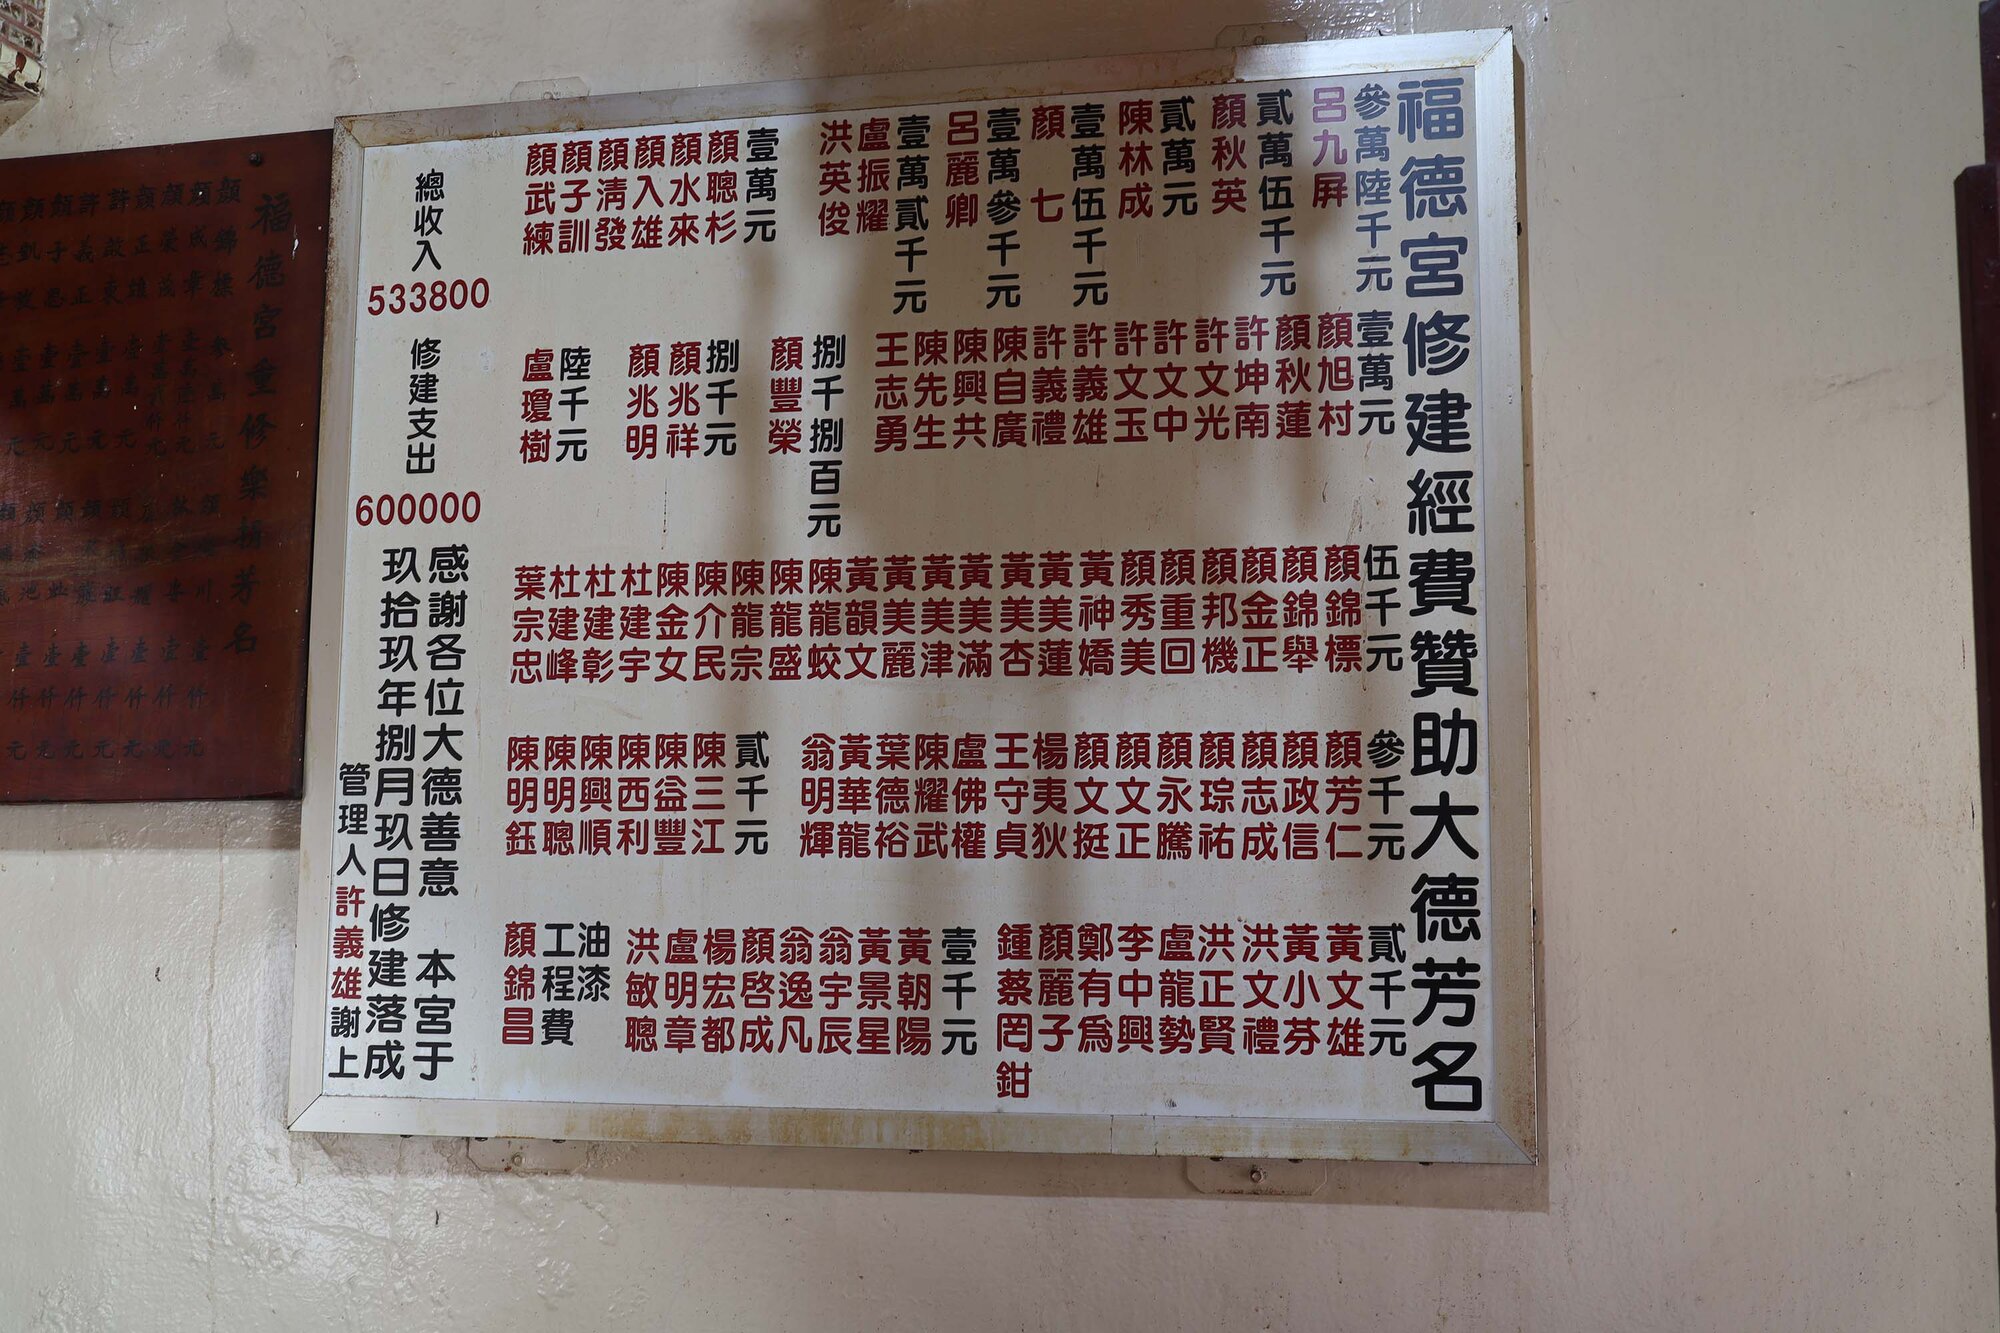 福德宮修建經費贊助大德芳名
參萬陸千元
呂九屏
貳萬伍千元
顏秋英
貳萬元
陳林成
壹萬伍千元
顏七
壹萬參千元
呂麗卿
壹萬貳千元
盧振耀
洪英俊
壹萬元
顏聰杉
顏水來
顏入雄
顏清發
顏子訓
顏武練
壹萬元
顏旭村
顏秋蓮
許坤南
許文光
許文中
許文玉
許義雄
許義禮
陳自廣
陳興共
陳先生
王志勇
捌千捌百元
顏豐榮
捌千元
顏兆祥
顏兆明
陸千元
盧瓊樹
伍千元
顏錦標
顏錦舉
顏金正
顏邦機
顏重回
顏秀美
黃神嬌
黃美蓮
黃美杏
黃美滿
黃美津
黃美麗
黃韻文
陳龍蛟
陳龍盛
陳龍宗
陳介民
陳金女
杜建宇
杜建彰
杜建峰
葉宗忠
參千元
顏芳仁
顏政信
顏志成
顏琮祐
顏永騰
顏文正
顏文挺
楊夷狄
王守貞
盧佛權
陳耀武
葉德裕
黃華龍
翁明輝
貳千元
陳三江
陳益豐
陳西利
陳興順
陳明聰
陳明鈺
貳千元
黃文雄
黃小芬
洪文禮
洪正賢
盧龍勢
李中興
鄭有為
顏麗子
鍾蔡罔鉗
壹千元
黃朝陽
黃景星
翁宇辰
翁逸凡
顏啓成
楊宏都
盧明章
洪敏聰
油漆
工程費
顏錦昌
總收入 533800
修建支出 600000
感謝各位大德善意 本宮于
玖拾玖年捌月玖日修建落成
管理人許義雄謝上
福德宮重修樂捐芳名